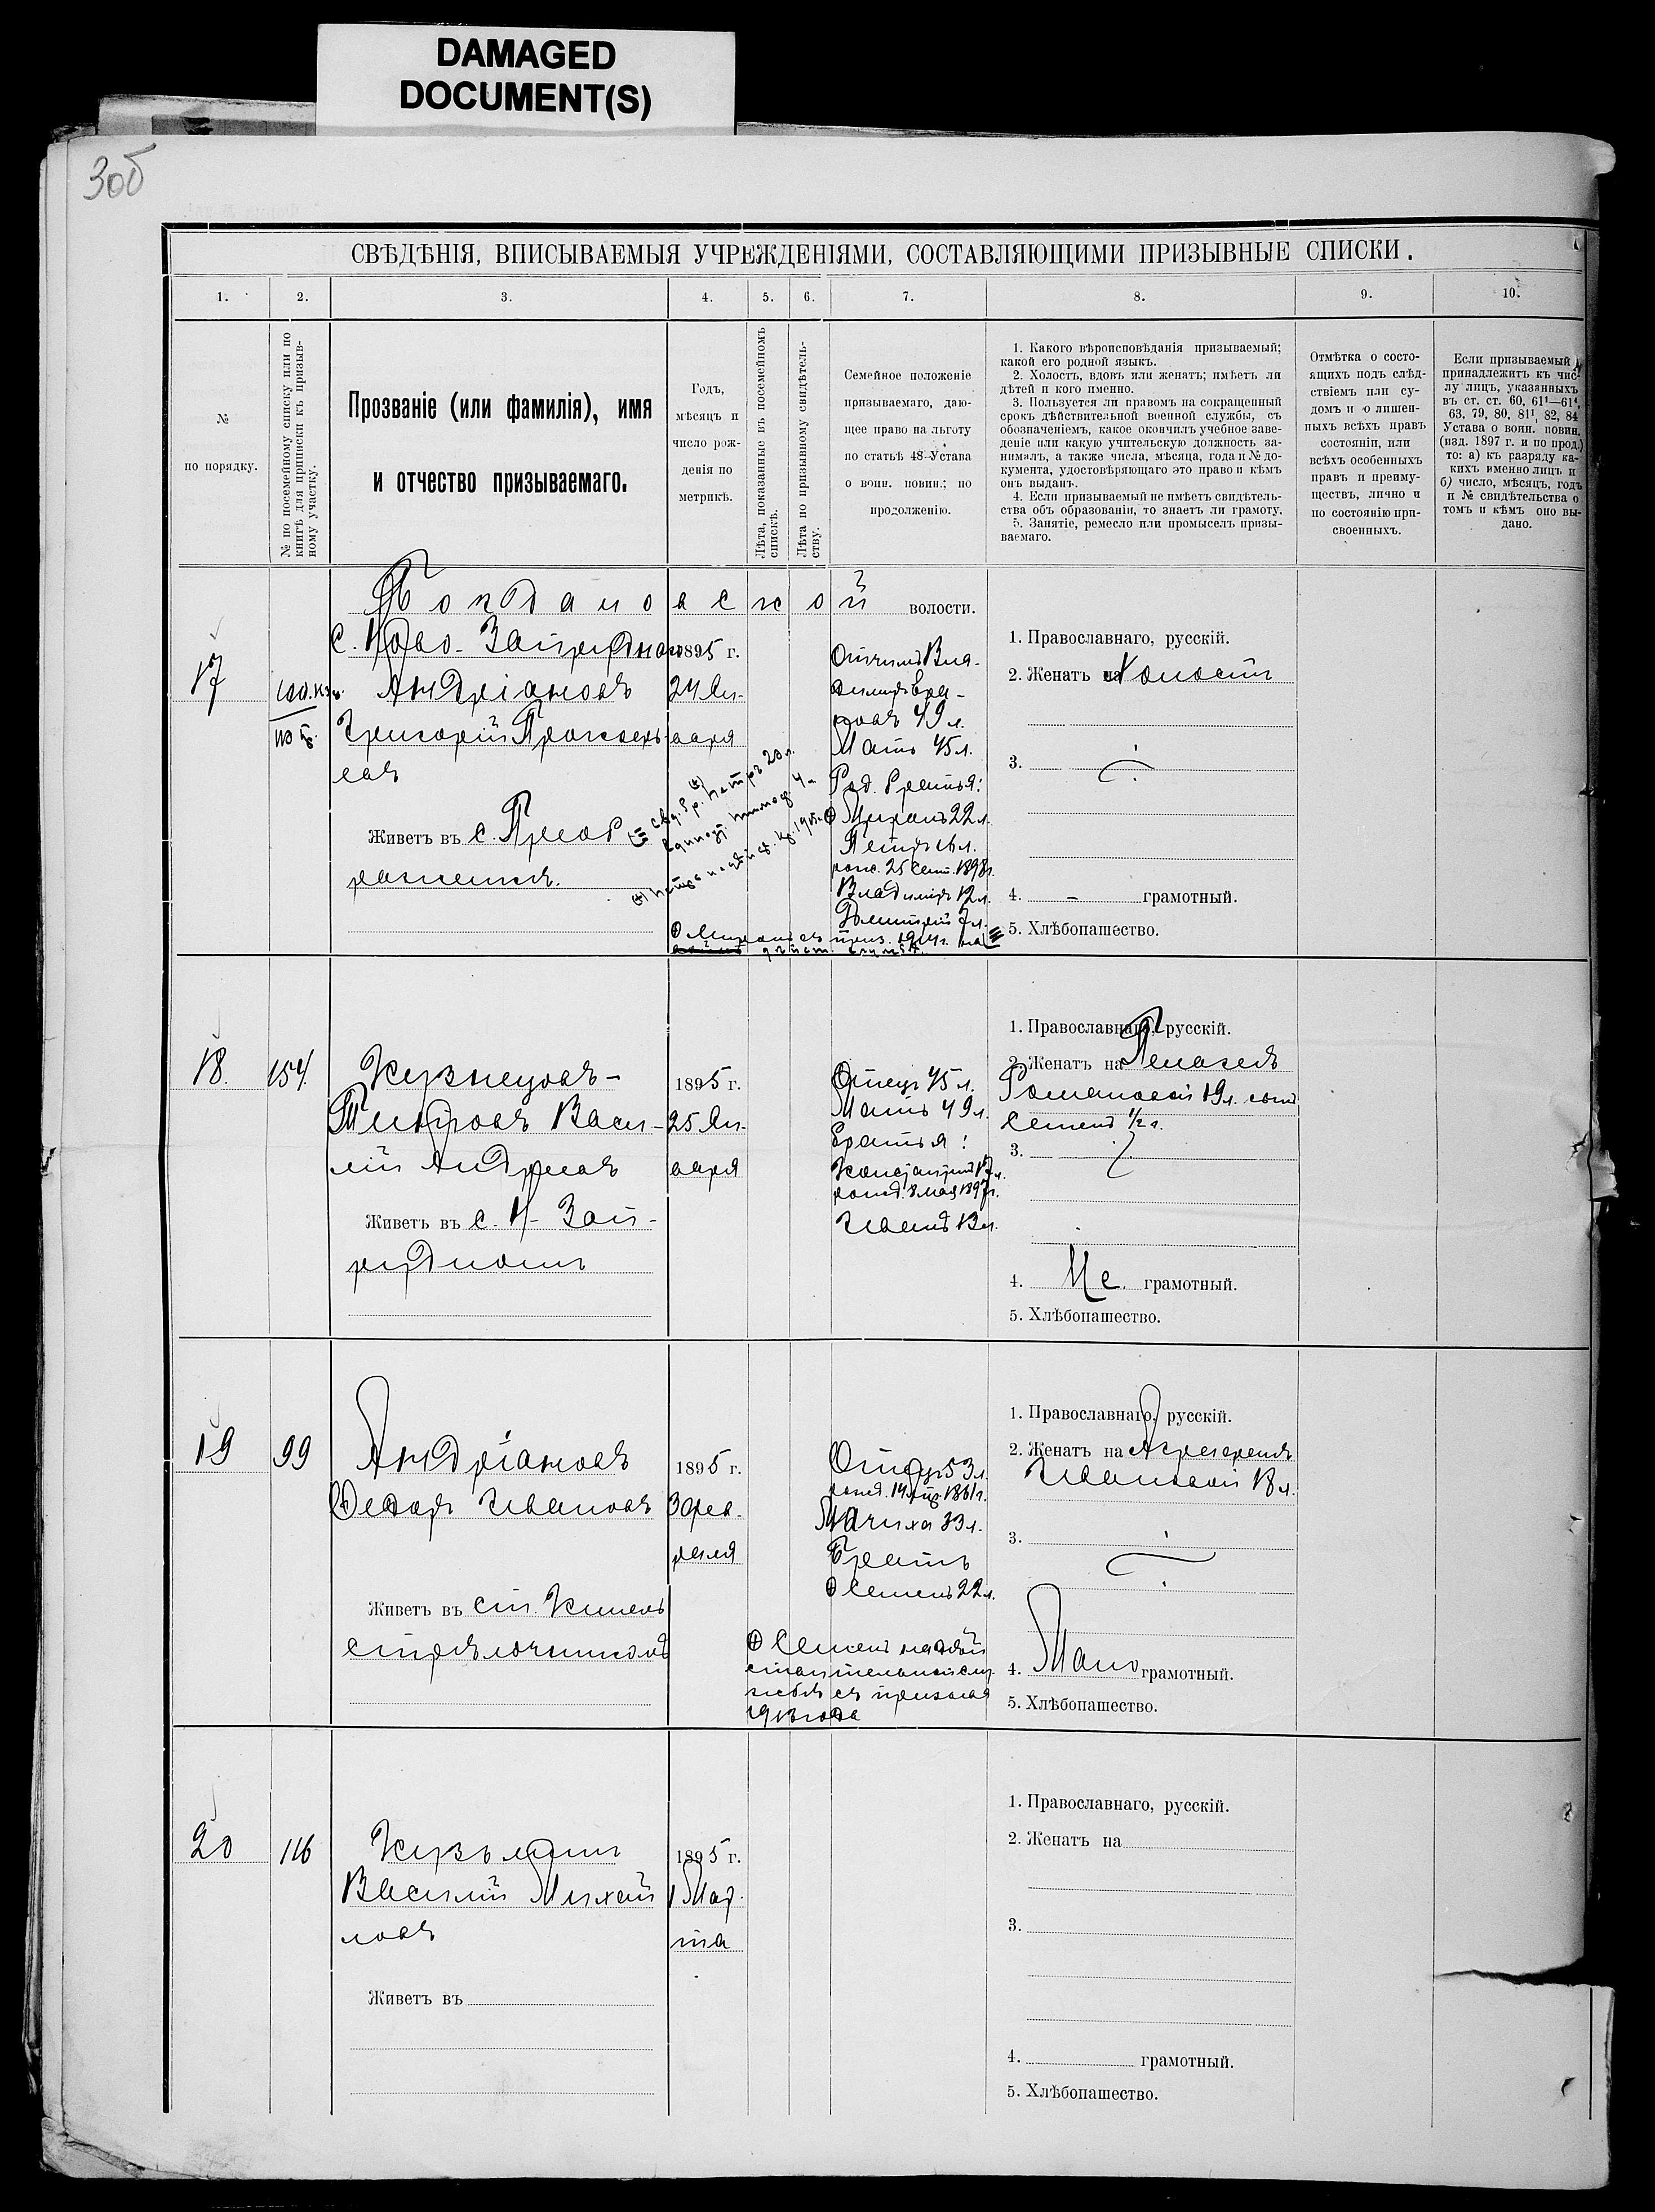 DAMAGED
DOCUMENT(S)
30б
СВѢДѢНІЯ, ВПИСЫВАЕМЫЯ УЧРЕЖДЕНІЯМИ, СОСТАВЛЯЮЩИМИ ПРИЗЫВНЫЕ СПИСКИ.
1. 2. 3. 4. 5. 6. 7. 8. 9. 10.
№
по порядку.
№ по посемейному списку или по
книгѣ для приписки къ призыв-
ному участку.
Прозваніе (или фамилія), имя
и отчество призываемаго.
Годъ,
мѣсяцъ и
число рож-
денія по
метрикѣ.
Лѣта, показанные въ посемейномъ
спискѣ.
Лѣта по призывному свидѣтель-
ству.
Семейное положеніе
призываемаго, даю-
щее право на льготу
по статьѣ 48 Устава
о воин. повин.; по
продолженію.
1. Какого вѣроисповѣданія призываемый;
какой его родной языкъ.
2. Холостъ, вдовъ или женатъ; имѣетъ ли
дѣтей и кого именно.
3. Пользуется ли правомъ на сокращенный
срокъ дѣйствительной военной службы, съ
обозначеніемъ, какое окончилъ учебное заве-
деніе или какую учительскую должность за-
нималъ, а также числа, мѣсяца, года и № до-
кумента, удостовѣряющаго это право и кѣмъ
онъ выданъ.
4. Если призываемый не имѣетъ свидѣтель-
ства объ образованіи, то знаетъ ли грамоту.
5. Занятіе, ремесло или промыселъ призы-
ваемаго.
Отмѣтка о состо-
ящихъ подъ слѣд-
ствіемъ или су-
домъ и о лишен-
ныхъ всѣхъ правъ
состоянія, или
всѣхъ особенныхъ
правъ и преиму-
ществъ, лично и
по состоянію при-
своенныхъ.
Если призываемый
принадлежитъ къ чис-
лу лицъ, указанныхъ
въ ст. ст. 60, 61¹—61⁴,
63, 79, 80, 81¹, 82, 84
Устава о воин. повин.
(изд. 1897 г. и по прод.)
то: а) къ разряду ка-
кихъ именно лицъ и
б) число, мѣсяцъ, годъ
и № свидѣтельства о
томъ и кѣмъ оно вы-
дано.
Богдановской волости.
17
с. Ново-Запрудного
Андріановъ
Григорій Прокофь-
евъ
Живетъ въ с.
1895 г.
24 Ян-
варя
Отчимъ Вла-
49 л.
Мать 45 л.
Род. братья:
Миронъ 22 л.
Петръ 16 л.
рожд. 25 Сент. 1898 г.
Владиміръ 12 л.
Дмитрій 7 л.
1. Православнаго, русскій.
2. Женатъ на Холостъ
3.
4. – грамотный.
5. Хлѣбопашество.
18. 154.
Кузнецовъ-
Тимофеевъ Васи-
лій Андреевъ
Живетъ въ с. Н-Зап-
рудномъ
1895 г.
25 Ян-
варя
Отецъ 45 л.
Мать 49 л.
Братья:
Константинъ 17 л.
рожд. 8 мая 1897 г.
Иванъ 13 л.
1. Православнаго, русскій.
2. Женатъ на Пелагеѣ
Романовой 19 л. сынъ
Семенъ ½ г.
3.
4. Не грамотный.
5. Хлѣбопашество.
19 99
Андріановъ
Федоръ Ивановъ
Живетъ въ ст. Кинель
стрѣлочникомъ
1895 г.
3 Фев-
раля
Отецъ 53 л.
рожд. 14 Апр. 1861 г.
Мачиха 33 л.
Братъ
⊕ Семенъ 22 л.
⊕ Семенъ на дѣй
ствительной слу-
жбѣ съ призыва
1913 года
1. Православнаго, русскій.
2. Женатъ на Агрефенѣ
Ивановой 18 л.
3.
4. Мало грамотный.
5. Хлѣбопашество.
20 116
Кузьминъ
Василій Михай
ловъ
Живетъ въ
1895 г.
1 Мар-
та
1. Православнаго, русскій.
2. Женатъ на
3.
4. грамотный.
5. Хлѣбопашество.